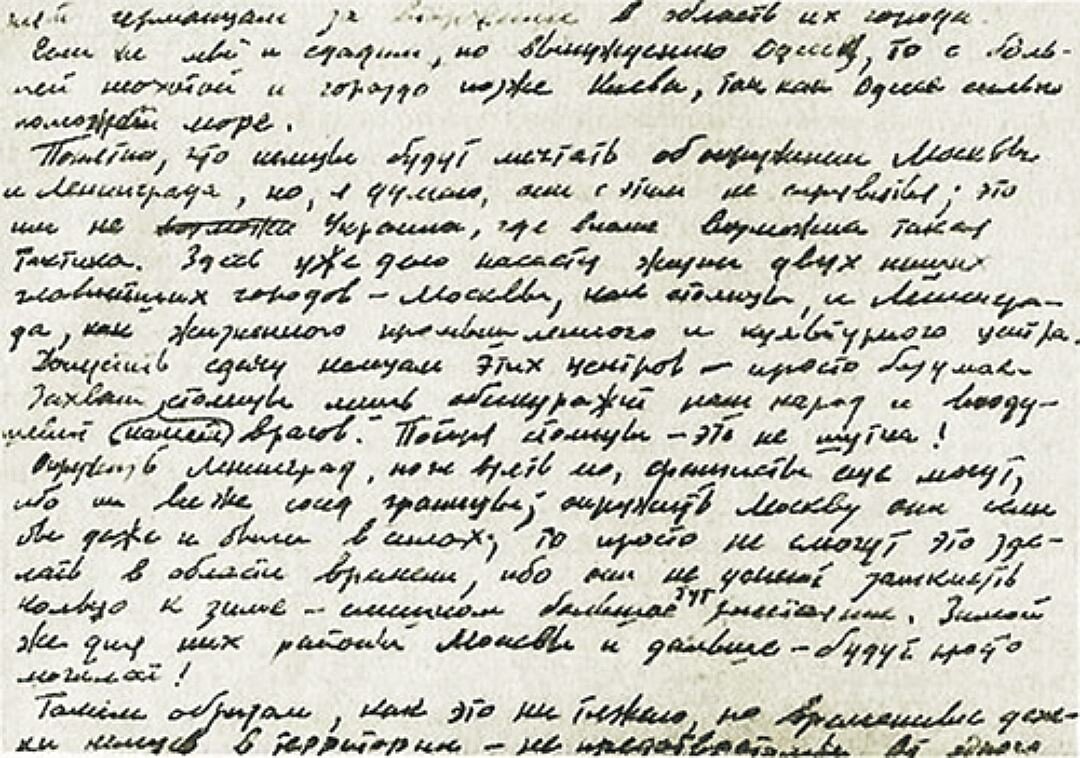 германцам за в область их города.
Если же мы и сдадим, по вынуждению Одессу, то с боль-
шей неохотой и гораздо позже Киева, так как Одессе сильно
поможет море.
Понятно, что немцы будут мечтать об окружении Москвы
и Ленинграда, но, я думаю, они с этим не справятся; это
им не Украина, где вполне возможна такая
тактика. Здесь уже дело касается жизни двух наших
главнейших городов – Москвы, как столицы, и Ленингра-
да, как жизненного промышленного и культурного центра.
Допустить сдачу немцам этих центров – просто безумие.
Захват столицы лишь обескуражит наш народ и вооду-
шевит (нашей) врагов. Потеря столицы – это не шутка!
Окружить Ленинград, но не взять его, фашисты еще могут,
ибо он все же сосед границы; окружить Москву они если
бы даже и были в силах, то просто не смогут это сде-
лать в области времени, ибо они не успеют замкнуть
кольцо к зиме – слишком большое тут расстояние. Зимой
же для них районы Москвы и дальше – будут просто
могилой!
Таким образом, как это ни тяжело, но временные
немцев в территории – не от одного